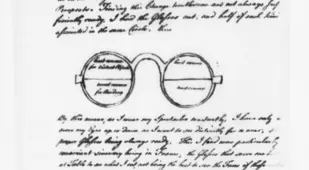 Purposes. Finding this Change troublesome and not always suf
ficiently ready, I had the Glasses cut, and half of each kind
associated in the same Circle, thus
least convex
for distant Objects
most convex
for Reading
least convex
most convex
By this means, as I wear my Spectacles constantly, I have only
move my Eyes up or down as I want to see distinctly far or near, 
proper Glasses being always ready. This I find more particularly
convenient since my being in France, the Glasses that serve me
at Table to see what I eat, not being the best to see the Faces of those